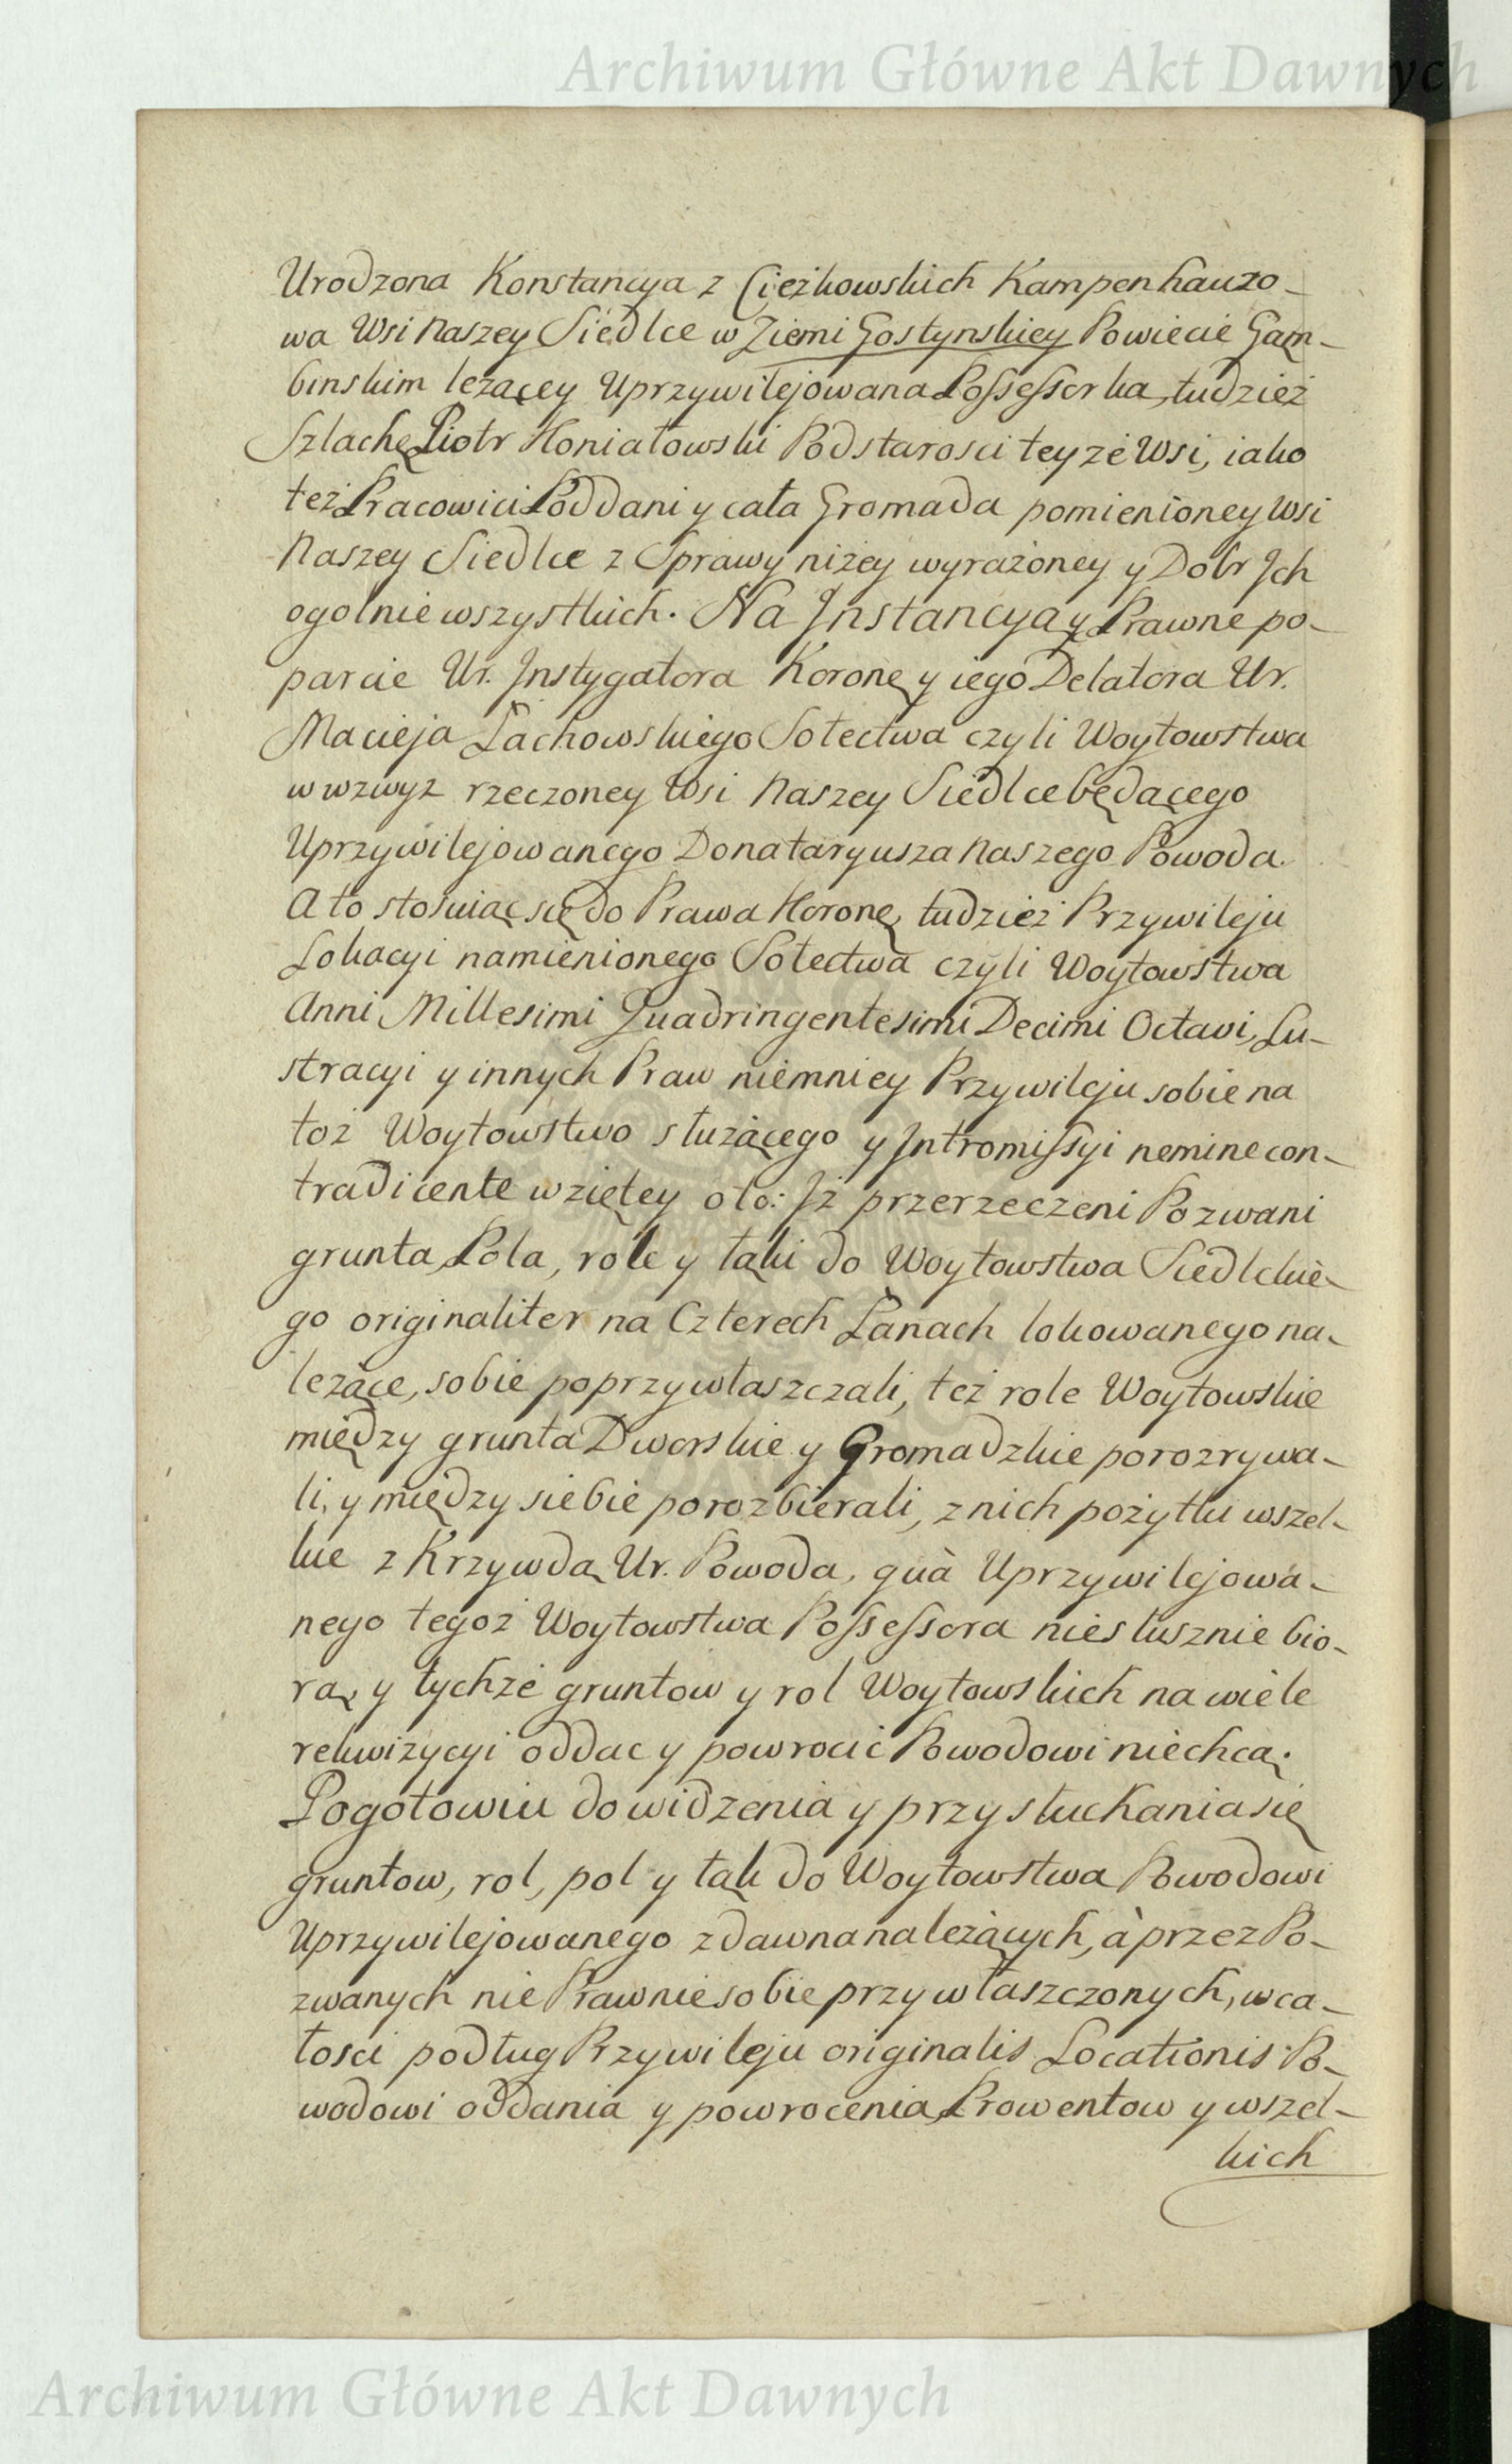 Archiwum Główne Akt Dawnych
Urodzona Konstancya z Cięzkowskich Kampenhauzo-
wa Wsi Naszey Siedlce w Ziemi Gostynskiey Powiecie Gąm-
binskim lezącey Uprzywilejowana Possessorka, tudzież
Szlachę Piotr Koniatowski Podstarosci teyże Wsi, iako
też Pracowici Poddani y cała Gromada pomienioney Wsi
Naszey Siedlce z Sprawy niżey wyrażoney y Dobr Jch
ogolnie wszystkich. Na Jnstancyą y Prawne po-
parcie Ur. Jnstygatora Koronę y iego Delatora Ur.
Macieja Łachowskiego Sołectwa czyli Woytowstwa
w wzwyz rzeczoney Wsi Naszey Siedlce będącego
Uprzywilejowanego Donataryusza Naszego Powoda.
A to stosuiąc się do Prawa Koronę, tudzież Przywileju
Lokacyi namienionego Sołectwa czyli Woytowstwa
Anni Millesimi Quadringentesimi Decimi Octavi, Lu-
stracyi y innych Praw niemniey Przywileju sobie na
toż Woytowstwo służącego y Jntromissyi nemine con-
tradicente wziętey oto: Jż przerzeczeni Pozwani
grunta, Pola, role y łąki do Woytowstwa Siedlckie-
go originaliter na Czterech Łanach lokowanego na-
leżące, sobie poprzywłaszczali, też role Woytowskie
między grunta Dworskie y Gromadzkie porozrywa-
li, y między siebie porozbierali, z nich pożytki wszel-
kie z Krzywdą Ur. Powoda, quà Uprzywilejowa-
nego tegoż Woytowstwa Possessora niesłusznie bio-
rą, y tychże gruntow y rol Woytowskich na wiele
rekwizycyi oddac y powrocić Powodowi niechcą.
Pogotowiu do widzenia y przysłuchania się
gruntow, rol, pol y łąk do Woytowstwa Powodowi
Uprzywilejowanego zdawna należących, à przez Po-
zwanych nie Prawnie sobie przywłaszczonych, w ca-
łosci podług Przywileju originalis Locationis Po-
wodowi oddania y powrocenia, Prowentow y wszel-
kich
Archiwum Główne Akt Dawnych